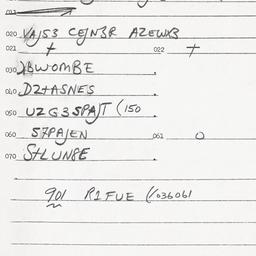 020 VAJ53 CEJN3R AZEWX3
021 + 022 +
030 XBWOMBE
040 DZ+ASNES
050 UZG3SPAJT (150
060 57PAJEN 061 O
070 S+LUN8E
901 R1FUE (/036061